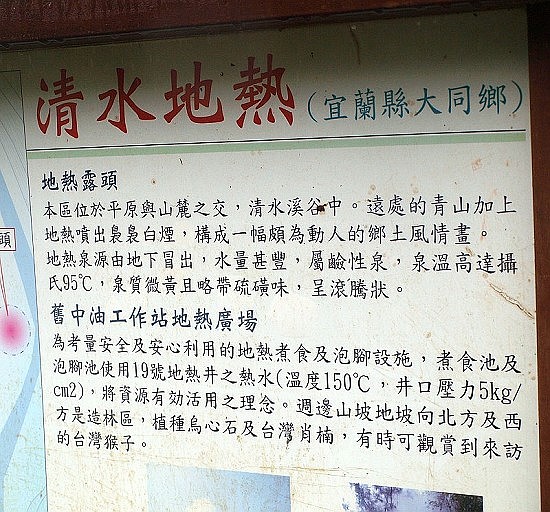 清水地熱(宜蘭縣大同鄉)
地熱露頭
本區位於平原與山麓之交，清水溪谷中。遠處的青山加上
地熱噴出裊裊白煙，構成一幅頗為動人的鄉土風情畫。
地熱泉源由地下冒出，水量甚豐，屬鹼性泉，泉溫高達攝
氏95℃，泉質微黃且略帶硫磺味，呈滾騰狀。
頭
舊中油工作站地熱廣場
為考量安全及安心利用的地熱煮食及泡腳設施，煮食池及
泡腳池使用19號地熱井之熱水(溫度150℃，井口壓力5kg/
cm2)，將資源有效活用之理念。週邊山坡地坡向北方及西
方是造林區，植種烏心石及台灣肖楠，有時可觀賞到來訪
的台灣猴子。